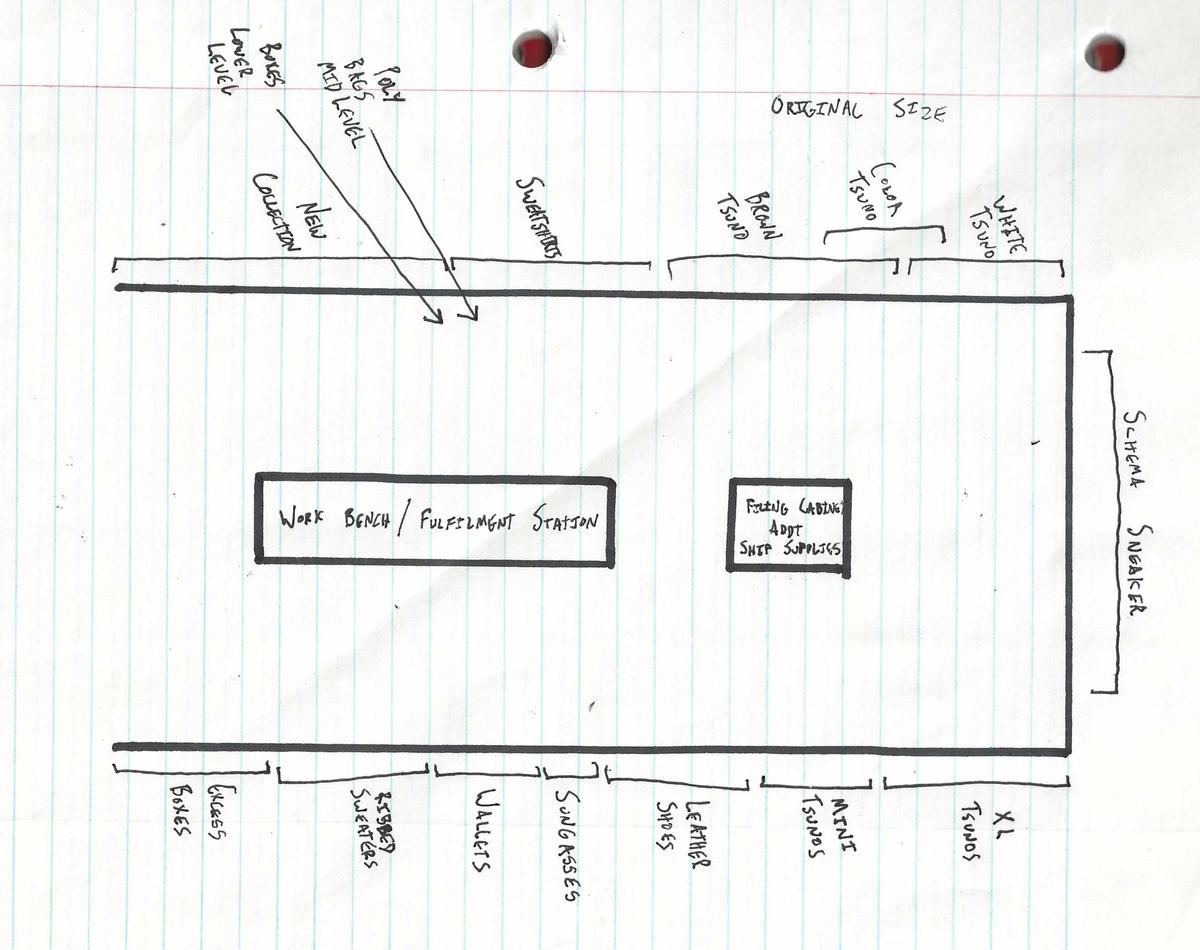 ORIGINAL SIZE
BOXES
LOWER
LEVEL
POLY
BAGS
MID LEVEL
NEW
COLLECTION
SWEATSHIRTS
BROWN
TSUNO
COLOR
TSUNO
WHITE
TSUNO
SCHEMA SNEAKER
WORK BENCH / FULFILMENT STATION
FILING CABINET
ADDT
SHIP SUPPLIES
EXCESS
BOXES
RIBBED
SWEATERS
WALLETS
SUNGASSES
LEATHER
SHOES
MINI
TSUNOS
XL
TSUNOS